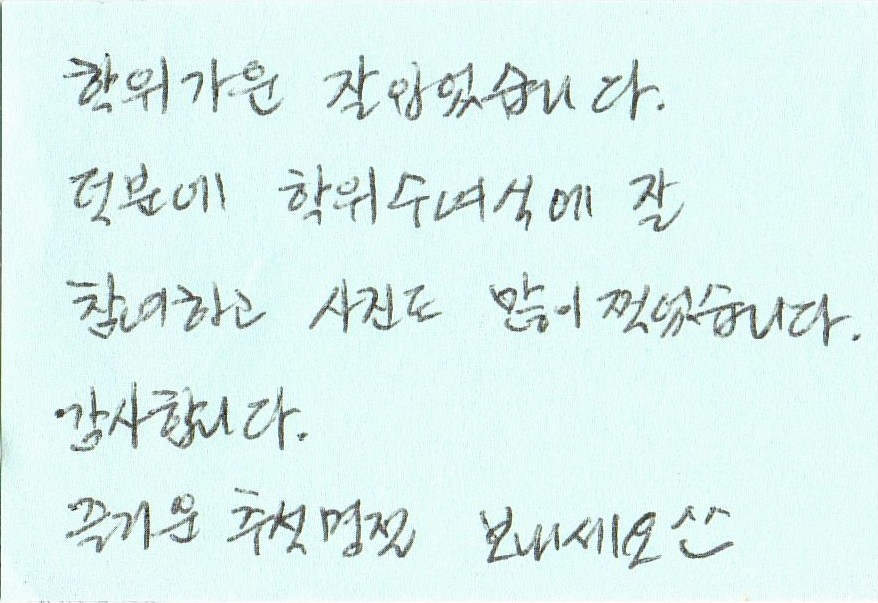 학위가운 잘입었습니다.
덕분에 학위수여식에 잘
참여하고 사진도 많이 찍었습니다.
감사합니다.
즐거운 추석명절 보내세요^^